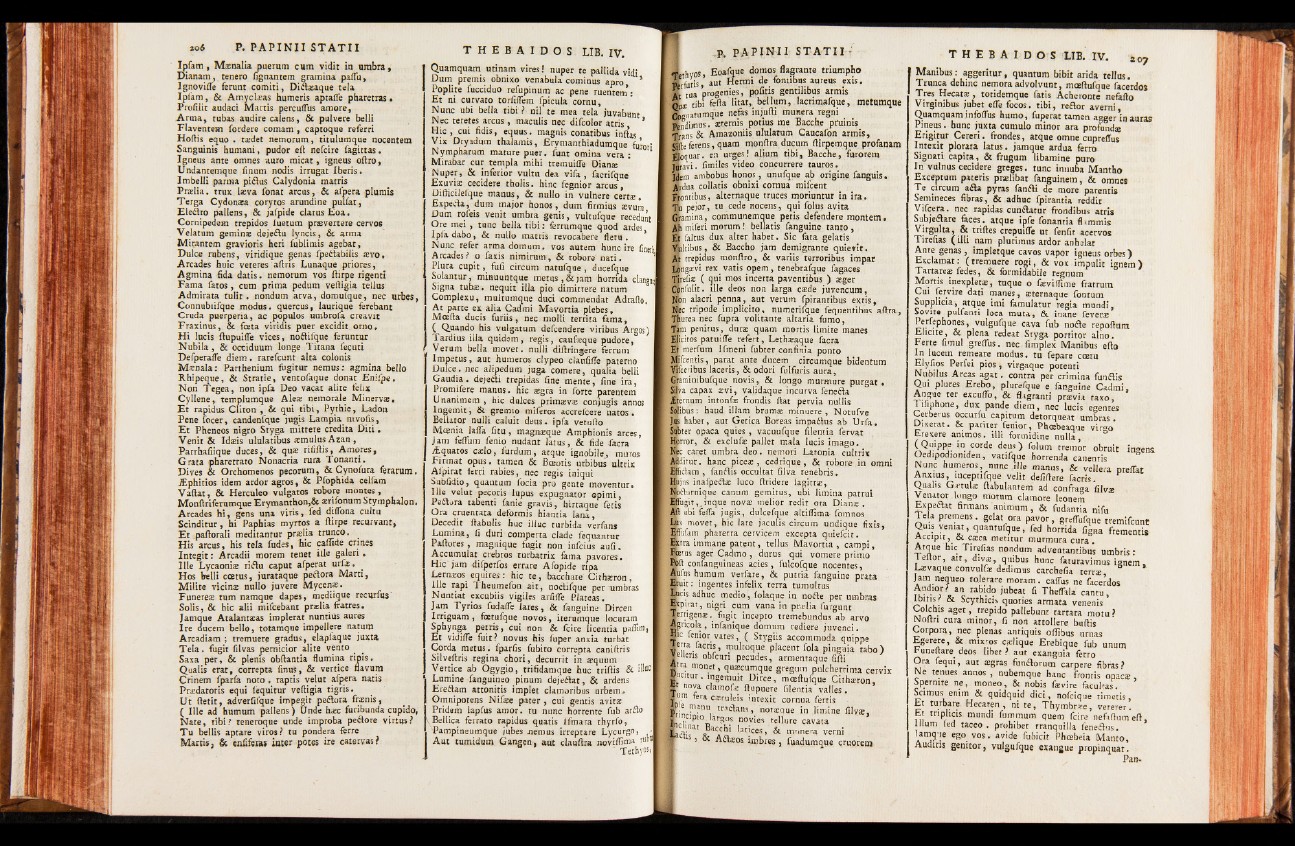 206 P. PAPINII STATII
Ipſam, Mænalia puerum cum vidit in umbra,
Dianam, tenero ſignantem gramina paſſu,
Ignoviſſe ferunt comiti, Dictæaque tela
Ipſam, & Amyclæas humeris aptaſſe pharetras.
Proſilit audaci Martis percuſſus amore,
Arma, tubas audire calens, & pulvere belli
Flaventem ſordere comam, captoque referri
Hoſtis equo. tædet nemorum, titulumque nocentem
Sanguinis humani, pudor eſt neſcire ſagittas.
Igneus ante omnes auro micat, igneus oſtro,
Undantemque ſinum nodis irrugat Iberis.
Imbelli parma pictus Calydonia matris
Prælia. trux læva ſonat arcus, & aſpera plumis
Terga Cydonæa corytos arundine pulſat,
Electro pallens, & jaſpide clarus Eoa.
Cornipedem trepidos ſuetum prævertere cervos
Velatum geminæ dejectu lyncis, & arma
Mirantem gravioris heri ſublimis agebat,
Dulce rubens, viridique genas ſpectabilis ævo.
Arcades huic veteres aſtris Lunaque priores,
Agmina fida datis. nemorum vos ſtirpe rigenti
Fama ſatos, cum prima pedum veſtigia tellus
Admirata tulit. nondum arva, domuſque, nec urbes,
Connubiiſque modus. quercus, laurique ferebant
Cruda puerperia, ac populos umbroſa creavit
Fraxinus, & fœta viridis puer excidit orno.
Hi lucis ſtupuiſſe vices, noctiſque feruntur
Nubila, & occiduum longe Titana ſecuti
Deſperaſſe diem. rareſcunt alta colonis
Mænala: Parthenium fugitur nemus: agmina bello
Rhipeque, & Stratie, ventoſaque donat Eniſpe.
Non Tegea, non ipſa Deo vacat alite felix
Cyllene, templumque Aleæ nemorale Minervæ.
Et rapidus Cliton, & qui tibi, Pythie, Ladon
Pene ſocer, candenſque jugis Lampia nivoſis,
Et Pheneos nigro Styga mittere credita Diti.
Venit & Idæis ululatibus æmulus Azan,
Parrhaſiique duces, & quæ riſiſtis, Amores,
Grata pharetrato Nonacria rura Tonanti.
Dives & Orchomenos pecorum, & Cynoſura ferarum.
Æphirios idem ardor agros, & Pſophida celſam
Vaſtat, & Herculeo vulgatos robore montes,
Monſtriferumque Erymanthon, & æriſonum Stymphalon.
Arcades hi, gens una viris, ſed diſſona cultu
Scinditur, hi Paphias myrtos a ſtirpe recurvant,
Et paſtorali meditantur prælia trunco.
His arcus, his tela ſudes, hic caſſide crines
Integit: Arcadii morem tenet ille galeri.
Ille Lycaoniæ rictu caput aſperat urſæ.
Hos belli cœtus, jurataque pectora Marti,
Milite vicinæ nullo juvere Mycenæ.
Funereæ tum namque dapes, mediique recurſus
Solis, & hic alii miſcebant prælia fratres.
Jamque Atalantæas implerat nuntius aures
Ire ducem bello, totamque impellere natum
Arcadiam; tremuere gradus, elapſaque juxta
Tela. fugit ſilvas pernicior alite vento
Saxa per, & plenis obſtantia flumina ripis.
Qualis erat, correpta ſinus, & vertice flavum
Crinem ſparſa noto. raptis velut aſpera natis
Prædatoris equi ſequitur veſtigia tigris.
Ut ſtetit, adverſiſque impegit pectora frænis,
(Ille ad humum pallens) Unde hæc furibunda cupido,
Nate, tibi? teneroque unde improba pectore virtus?
Tu bellis aptare viros? tu pondera ferre
Martis, & enſiferas inter potes ire catervas?
THEBAIDOS LIB. IV.
Quamquam utinam vires! nuper te pallida vidi,
Dum premis obnixo venabula cominus apro,
Poplite ſucciduo reſupinum ac pene ruentem:
Et ni curvato torſiſſem ſpicula cornu,
Nunc ubi bella tibi? nil te mea tela juvabunt,
Nec teretes arcus, maculis nec diſcolor atris,
Hic, cui fidis, equus. magnis conatibus inſtas,
Vix Dryadum thalamis, Erymanthiadumque furori
Nympharum mature puer. ſunt omina vera:
Mirabar cur templa mihi tremuiſſe Dianæ
Nuper, & inferior vultu dea viſa, ſacriſque
Exuviæ cecidere tholis. hinc ſegnior arcus,
Difficileſque manus, & nullo in vulnere certæ.
Expecta, dum major honos, dum firmius ævum,
Dum roſeis venit umbra genis, vultuſque recedunt
Ore mei, tunc bella tibi: ferrumque quod ardes,
Ipſa dabo, & nullo matris revocabere fletu.
Nunc refer arma domum. vos autem hunc ire ſinetis
Arcades? o ſaxis nimirum, & robore nati.
Plura cupit, fuſi circum natuſque, duceſque
Solantur, minuuntque metus, & jam horrida clangunt
Signa tubæ. nequit illa pio dimittere natum
Complexu, multumque duci commendat Adraſto.
At parte ex alia Cadmi Mavortia plebes,
Mœſta ducis furiis, nec molli territa fama,
(Quando his vulgatum deſcendere viribus Argos)
Tardius illa quidem, regis, cauſæque pudore,
Verum bella movet. nulli diſtringere ferrum
Impetus, aut humeros clypeo clauſiſſe paterno
Dulce. nec alipedum juga comere, qualia belli
Gaudia. dejecti trepidas ſine mente, ſine ira,
Promiſere manus. hic ægra in ſorte parentem
Unanimem, hic dulces primævæ conjugis annos
Ingemit, & gremio miſeros accreſcere natos.
Bellator nulli caluit deus. ipſa vetuſto
Mœnia laſſa ſitu, magnæque Amphionis arces,
Jam feſſum ſenio nudant latus, & fide ſacra
Æquatos cælo, ſurdum, atque ignobile, muros
Firmat opus. tamen & Bœotis urbibus ultrix
Aſpirat ferri rabies, nec regis iniqui
Subſidio, quantum ſocia pro gente moventur.
Ille velut pecoris lupus expugnator opimi,
Pectora tabenti ſanie gravis, hirtaque ſetis
Ora cruentata deformis hiantia lana,
Decedit ſtabulis huc illuc turbida verſans
Lumina, ſi duri comperta clade ſequantur
Paſtores, magnique fugit non inſcius auſi.
Accumulat crebros turbatrix fama pavores.
Hic jam diſperſos errare Aſopide ripa
Lernæos equites: hic te, bacchate Cithæron,
Ille rapi Theumeſon ait, noctiſque per umbras
Nuntiat excubiis vigiles arſiſſe Plateas.
Jam Tyrios ſudaſſe lares, & ſanguine Dircen
Irriguam, fœtuſque novos, iterumque locutam
Sphynga petris, cui non & ſcire licentia paſſim,
Et vidiſſe fuit? novus his ſuper anxia turbat
Corda metus. ſparſis ſubito correpta caniſtris
Silveſtris regina chori, decurrit in æquum
Vertice ab Ogygio, trifidamque huc triſtis & illuc
Lumine ſanguineo pinum dejectat, & ardens
Erectam attonitis implet clamoribus orbem.
Omnipotens Niſæe pater, cui gentis avitæ
Pridem lapſus amor. tu nunc horrente ſub arcto
Bellica ferrato rapidus quatis Iſmara thyrſo,
Pampineumque jubes nemus irreptare Lycurgo,
Aut tumidum Gangen, aut clauſtra noviſſima rubræ
Tethyos,
P. PAPINII STATII
Tethyos, Eoaſque domos flagrante triumpho
Perfuris, aut Hermi de fontibus aureus exis.
At tua progenies, poſitis gentilibus armis
Quæ tibi feſta litat, bellum, lacrimaſque, metumque
Cognatumque nefas injuſti munera regni
Pendimus. æternis potius me Bacche pruinis
Trans & Amazoniis ululatum Caucaſon armis,
Siſte ferens, quam monſtra ducum ſtirpemque profanam
Eloquar. en urges! alium tibi, Bacche, furorem
Juravi. ſimiles video concurrere tauros.
Idem ambobus honos, unuſque ab origine ſanguis.
Ardua collatis obnixi cornua miſcent
Frontibus, alternaque truces moriuntur in ira.
Tu pejor, tu cede nocens, qui ſolus avita
Gramina, communemque petis defendere montem.
Ah miſeri morum! bellatis ſanguine tanto,
Et ſaltus dux alter habet. Sic fata gelatis
Vultibus, & Baccho jam demigrante quievit.
At trepidus monſtro, & variis terroribus impar
Longævi rex vatis opem, tenebraſque ſagaces
Tireſiæ (qui mos incerta paventibus) æger
Conſulit. ille deos non larga cæde juvencum,
Non alacri penna, aut verum ſpirantibus extis,
Nec tripode implicito, numeriſque ſequentibus aſtra,
Thurea nec ſupra volitante altaria fumo,
Tam penitus, duræ quam mortis limite manes
Elicitos patuiſſe refert, Lethæaque ſacra
Et merſum Iſmeni ſubter confinia ponto
Miſcentis, parat ante ducem circumque bidentum
Viſceribus laceris, & odori ſulfuris aura,
Graminibuſque novis, & longo murmure purgat.
Silva capax ævi, validaque incurva ſenecta
Æternum intonſæ frondis ſtat pervia nullis
Solibus: haud illam brumæ minuere, Notuſve
Jus haber, aut Getica Boreas impactus ab Urſa.
Subter opaca quies, vacuuſque ſilentia ſervat
Horror, & excluſæ pallet mala lucis imago.
Nec caret umbra deo. nemori Latonia cultrix
Additur. hanc piceæ, cedrique, & robore in omni
Effictam, ſanctis occultat ſilva tenebris.
Hujus inaſpectæ luco ſtridere ſagittæ,
Nocturnique canum gemitus, ubi limina patrui
Effugit, inque novæ melior redit ora Dianæ.
Aſt ubi feſſa jugis, dulceſque altiſſima ſomnos
Lux movet, hic late jaculis circum undique fixis,
Effuſam pharetra cervicem excepta quieſcit.
Extra immane patent, tellus Mavortia, campi,
Fœtus ager Cadmo, durus qui vomere primo
Poſt conſanguineas acies, ſulcoſque nocentes,
Auſus humum verſare, & putria ſanguine prata
Eruit: ingentes infelix terra tumultus
Lucis adhuc medio, ſolaque in nocte per umbras
Expirat, nigri cum vana in prælia ſurgunt
Terrigenæ. fugit incepto tremebundus ab arvo
Agricola, inſanique domum rediere juvenci.
Hic ſenior vates, (Stygiis accommoda quippe
Terra ſacris, multoque placent ſola pinguia tabo)
Velleris obſcuri pecudes, armentaque ſiſti
Atra monet, quæcumque gregum pulcherrima cervix
Ducitur. ingemuit Dirce, mœſtuſque Cithæron,
Et nova clamoſæ ſtupuere ſilentia valles.
Tum fera cæruleis intexit cornua ſertis
Ipſe manu tractans, notæque in limine ſilvæ,
Principio largos novies tellure cavata
Inclinat Bacchi latices, & munera verni
Lactis, & Actæos imbres, ſuadumque cruorem
THEBAIDOS LIB. IV. 207
Manibus: aggeritur, quantum bibit arida tellus.
Trunca dehinc nemora advolvunt, mœſtuſque ſacerdos
Tres Hecatæ, totidemque ſatis Acheronte nefaſto
Virginibus jubet eſſe focos. tibi, rector averni,
Quamquam infoſſus humo, ſuperat tamen agger in auras
Pineus. hunc juxta cumulo minor ara profundæ
Erigitur Cereri. frondes, atque omne cupreſſus
Intexit plorata latus. jamque ardua ferro
Signati capita, & frugum libamine puro
In vulnus cecidere greges. tunc innuba Mantho
Exceptum pateris prælibat ſanguinem, & omnes
Ter circum acta pyras ſancti de more parentis
Semineces fibras, & adhuc ſpirantia reddit
Viſcera. nec rapidas cunctatur frondibus atris
Subjectare faces. atque ipſe ſonantia flammis
Virgulta, & triſtes crepuiſſe ut ſenſit acervos
Tireſias (illi nam plurimus ardor anhelat
Ante genas, impletque cavos vapor igneus orbes)
Exclamat: (tremuere rogi, & vox impulit ignem)
Tartareæ ſedes, & formidabile regnum
Mortis inexpletæ, tuque o ſæviſſime fratrum
Cui ſervire dati manes, æternaque ſontum
Supplicia, atque imi famulatur regia mundi,
Solvite pulſanti loca muta, & inane ſeveræ
Perſephones, vulguſque cava ſub nocte repoſtum
Elicite, & plena redeat Styga portitor alno.
Ferte ſimul greſſus. nec ſimplex Manibus eſto
In lucem remeare modus. tu ſepare cœtu
Elyſios Perſei pios, virgaque potenti
Nubilus Arcas agat. contra per crimina functis
Qui plures Erebo, plureſque e ſanguine Cadmi,
Angue ter excuſſo, & flagranti prævia taxo,
Tiſiphone, dux pande diem, nec lucis egentes
Cerberus occurſu capitum detorqueat umbras.
Dixerat. & pariter ſenior, Phœbeaque virgo
Erexere animos. illi formidine nulla,
(Quippe in corde deus) ſolum timor obruit ingens
Oedipodioniden, vatiſque horrenda canentis
Nunc humeros, nunc ille manus, & vellera preſſat
Anxius, inceptiſque velit deſiſtere ſacris.
Qualis Gætulæ ſtabulantem ad confraga ſilvæ
Venator longo motum clamore leonem
Expectat firmans animum, & ſudantia niſu
Tela premens. gelat ora pavor, greſſuſque tremiſcunt
Quis veniat, quantuſque, ſed horrida ſigna frementis
Accipit, & cæca metitur murmura cura.
Atque hic Tireſias nondum adventantibus umbris:
Teſtor, ait, divæ, quibus hunc ſaturavimus ignem,
Lævaque convolſæ dedimus carcheſia terræ,
Jam nequeo tolerare moram. caſſus ne ſacerdos
Andior? an rabido jubeat ſi Theſſala cantu,
Ibitis? & Scythicis quoties armata venenis
Colchis aget, trepido pallebunt tartara motu?
Noſtri cura minor, ſi non attollere buſtis
Corpora, nec plenas antiquis oſſibus urnas
Egerere, & mixtos cælique Erebique ſub unum
Funeſtare deos libet? aut exanguia ferro
Ora ſequi, aut ægras functorum carpere fibras?
Ne tenues annos, nubemque hanc frontis opacæ,
Spernite ne, moneo, & nobis ſævire facultas.
Scimus enim & quidquid dici, noſcique timetis,
Et turbare Hecaten, ni te, Thymbræe, vererer.
Et triplicis mundi ſummum quem ſcire nefaſtum eſt,
Illum ſed taceo. prohibet tranquilla ſenectus.
Iamque ego vos. avide ſubicit Phœbeia Manto,
Audiris genitor, vulguſque exangue propinquat.
Pan-